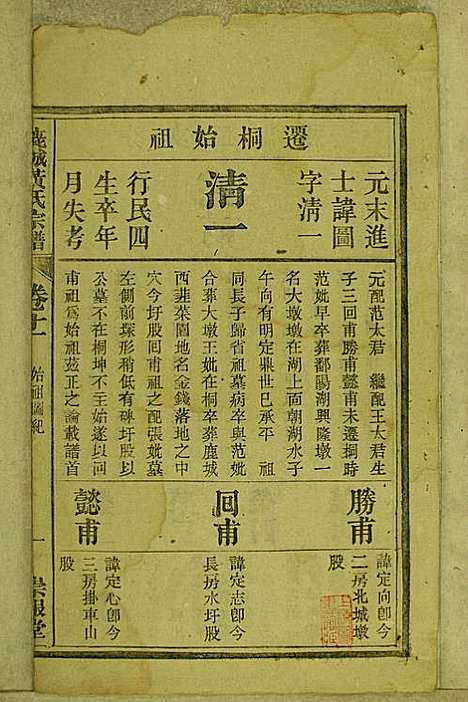 遷桐始祖
元末進
士諱圖
字清一
清一
行民四
生卒年
月失考
元配范太君　繼配王太君生
子三回甫勝甫懿甫未遷桐時
范妣早卒葬鄱陽湖興隆墩一
名大墩墩在湖上面朝湖水子
午向有明定鼎世已承平　祖
同長子歸省祖墓病卒與范妣
合葬大墩王妣在桐卒葬鹿城
西韭菜園地名金錢落地之中
穴今圩股回甫祖之配張妣墓
左側前塚形稍低有碑圩股以
公墓不在桐坤不主始遂以回
甫祖爲始祖茲正之論載譜首
勝甫
諱定向卽今
二房北城墩
股
回甫
諱定志卽今
長房水圩股
懿甫
諱定心卽今
三房掛車山
股
鹿城黃氏宗譜
卷十一
始祖圖紀
一
崇報堂